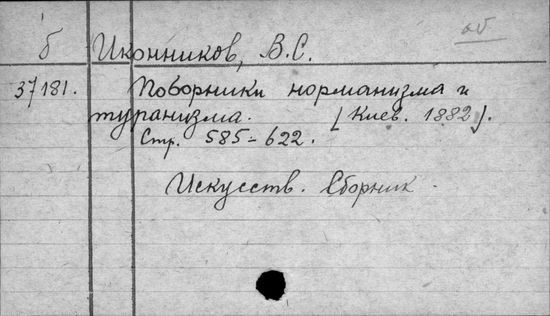 б Иконников, В.С.
37181. Поборники норманизма и
туранизма. [Киев. 1882].
Стр. 585-622.
Искусств. Сборник.